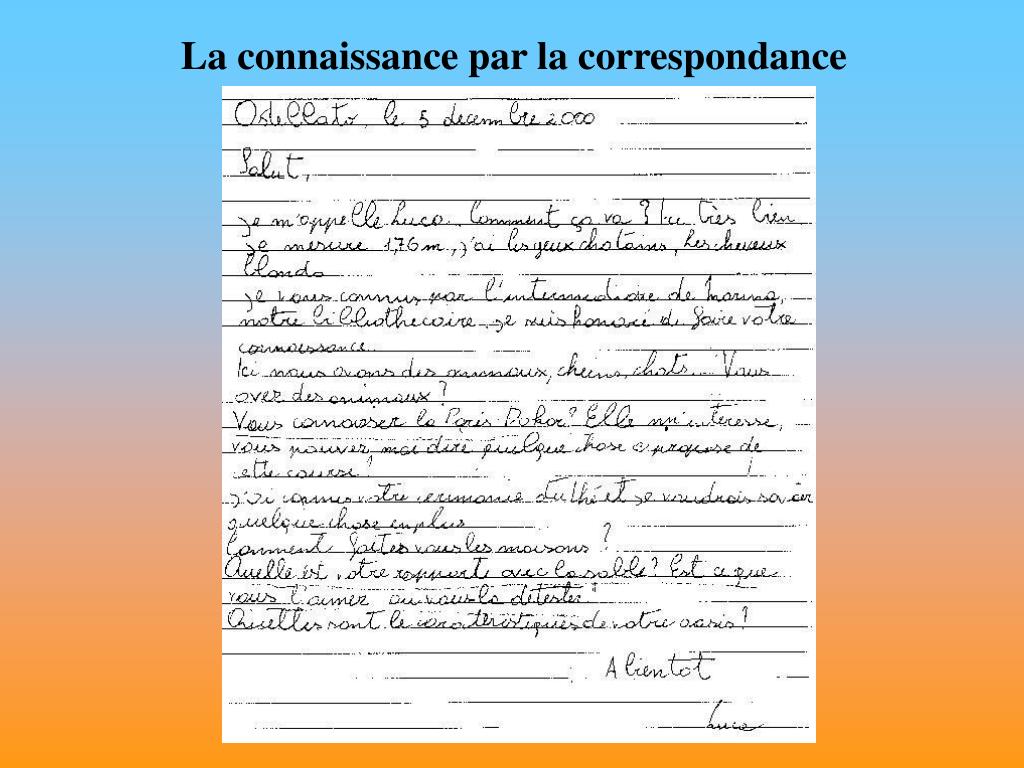 La connaissance par la correspondance
Ostellato, le 5 decembre 2000
Salut,
Je m'appelle Luca. Comment ça va? très bien
Je mesure 1,76 m., j'ai les yeux chatains, les cheveux
blonds
Je vous connus par l'intermediaire de Marina,
notre bibliothecaire, je suis honoré de faire votre
connaissance.
Ici nous avons des animaux, cheins, chats... Vous
avez des animaux?
Vous connaisez la Paris Dakar? Elle m'interesse,
vous pouvez moi dire quelque chose a propose de
cette course?
J'ai connus votre cerimonie du thé et je voudrais savoir
quelque chose en plus
Comment faites vous les maisons?
Quelle est votre rapporte avec la sable? Est ce que
vous l'aimez ou vous la detester?
Quelles sont le caracteristiques de votre oasis?
A bientot
Luca